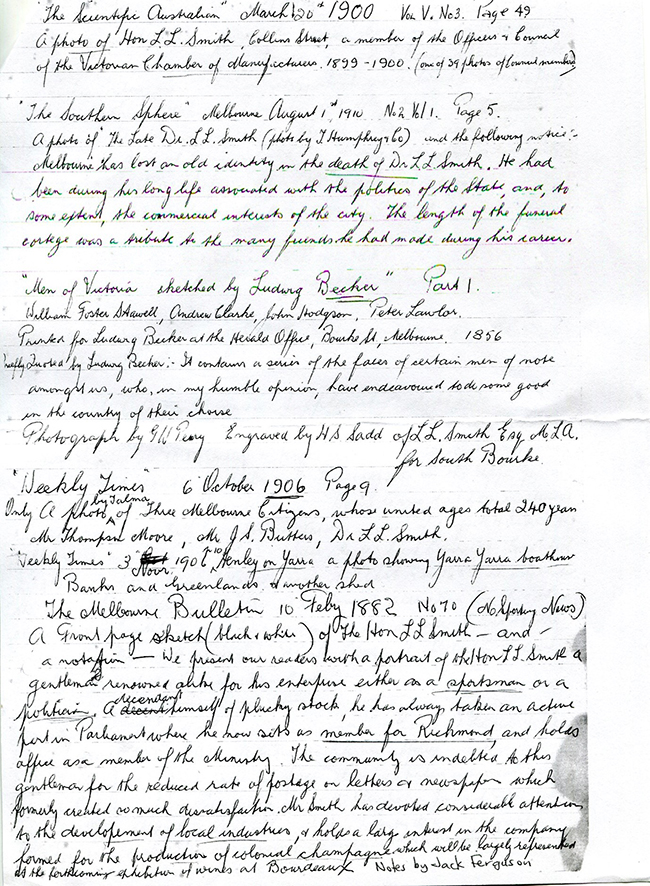 "The Scientific Australian" March 20th 1900 Vol V. No3. Page 49
A photo of Hon L L. Smith, Collins Street, a member of the Officers & Council
of the Victorian Chamber of Manufacturers. 1899-1900. (one of 39 photos of Council members)
"The Southern Sphere" Melbourne August 1st 1910 No2 Vol 1. Page 5.
A photo of "The Late Dr. L L. Smith (photo by T Humphrey & Co) and the following notice:-
Melbourne has lost an old identity in the death of Dr. L L Smith. He had
been during his long life associated with the politics of the State, and, to
some extent, the commercial interests of the city. The length of the funeral
cortege was a tribute to the many friends he had made during his career.
"Men of Victoria sketched by Ludwig Becker" Part 1.
William Foster Stawell, Andrew Clarke, John Hodgson, Peter Lawlor.
Printed for Ludwig Becker at the Herald Office, Bourke St, Melbourne. 1856
Briefly Quoted by Ludwig Becker:- It contains a series of the faces of certain men of note
amongst us, who, in my humble opinion, have endeavoured to do some good
in the country of their choise
Photograph by G W Perry Engraved by H S Sadd of L L. Smith Esq M.L.A.
for South Bourke.
"Weekly Times" 6 October 1906 Page 9.
by Talma
Only A photo of Three Melbourne Citizens, whose united ages total 240 years
Mr Thompson Moore, Mr J S. Butters, Dr L L. Smith.
"Weekly Times" 3 Novr 1906 Henley on Yarra a photo showing Yarra Yarra boathouse
Banks and Greenlands & another shed
The Melbourne Bulletin 10 Feby 1882 No 70 (No Sporting News)
A Front page sketch (black & white) of The Hon L L Smith - and -
a notation - We present our readers with a portrait of the Hon L L Smith a
gentleman renowned alike for his enterprise either as a sportsman or a
descendant
politician. A himself of plucky stock, he has always taken an active
part in Parliament where he now sits as member for Richmond, and holds
office as a member of the Ministry. The community is indebted to this
gentleman for the reduced rate of postage on letters & newspaper which
formerly created so much dissatisfaction. Mr Smith has devoted considerable attention
to the developement of local industries, & holds a large interest in the company
formed for the production of colonial champagne which will be largely represented
at the forthcoming exhibition of wines at Bourdeaux" Notes by Jack Ferguson